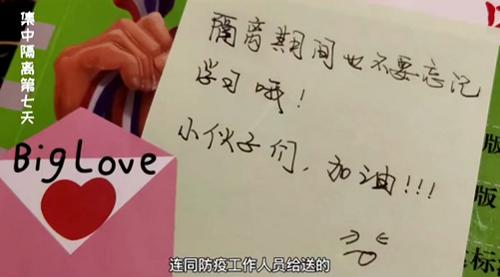 集中隔离第七天
隔离期间也不要忘记
学习哦！
小伙子们，加油!!!
Big Love
版
版
标
连同防疫工作人员给送的